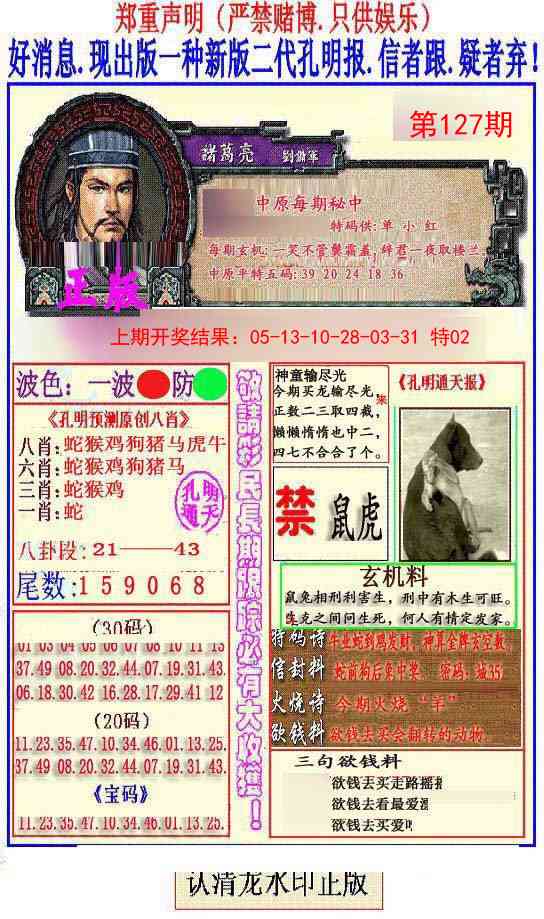 郑重声明（严禁赌博.只供娱乐）
好消息.现出版一种新版二代孔明报.信者跟.疑者弃！
第127期
諸葛亮
中原每期秘中
特码供:单 小 红
每期玄机:一笑不管
一夜取楼兰.
中原平特五码: 39 20 24 18 36
正版
上期开奖结果：05-13-10-28-03-31 特02
波色：一波 防
《孔明预测原创八肖》
八肖:蛇猴鸡狗猪马虎牛
六肖:蛇猴鸡狗猪马
三肖:蛇猴鸡
一肖:蛇
孔明
通天
八卦段:21——43
尾数:159068
(30码)
01 03 04 05 06 07 08 10 11 13
37.49 08.20.32.44.07.19.31.43.
06.18.30.42 16.28.17.29.41 12
(20码)
11.23.35.47.10.34.46.01.13.25.
37.49 08.20.32.44.07.19.31.43.
《宝码》
11.23.35.47.10.34.46.01.13.25.
敬請彩民長期跟踪必有大收獲！
神童输尽光
今期买龙输尽光,
正数二三取四截,
懒懒惰惰也中二,
四七不合合了个。
《孔明通天报》
禁 鼠虎
玄机料
鼠兔相刑利害生，刑中有木生可旺。
生克之间问生死，何人有情定发家。
特码诗 牛业蛇到鸡发财，神算金牌玄空数，
信封料 蛇前狗后兔中奖， 密码：域35
火烧诗 今期火烧“羊”
欲钱料 欲钱去买会翻转的动物.
三句欲钱料
欲钱去买走路摇摆
欲钱去看最爱
欲钱去买爱
认清龙水印正版